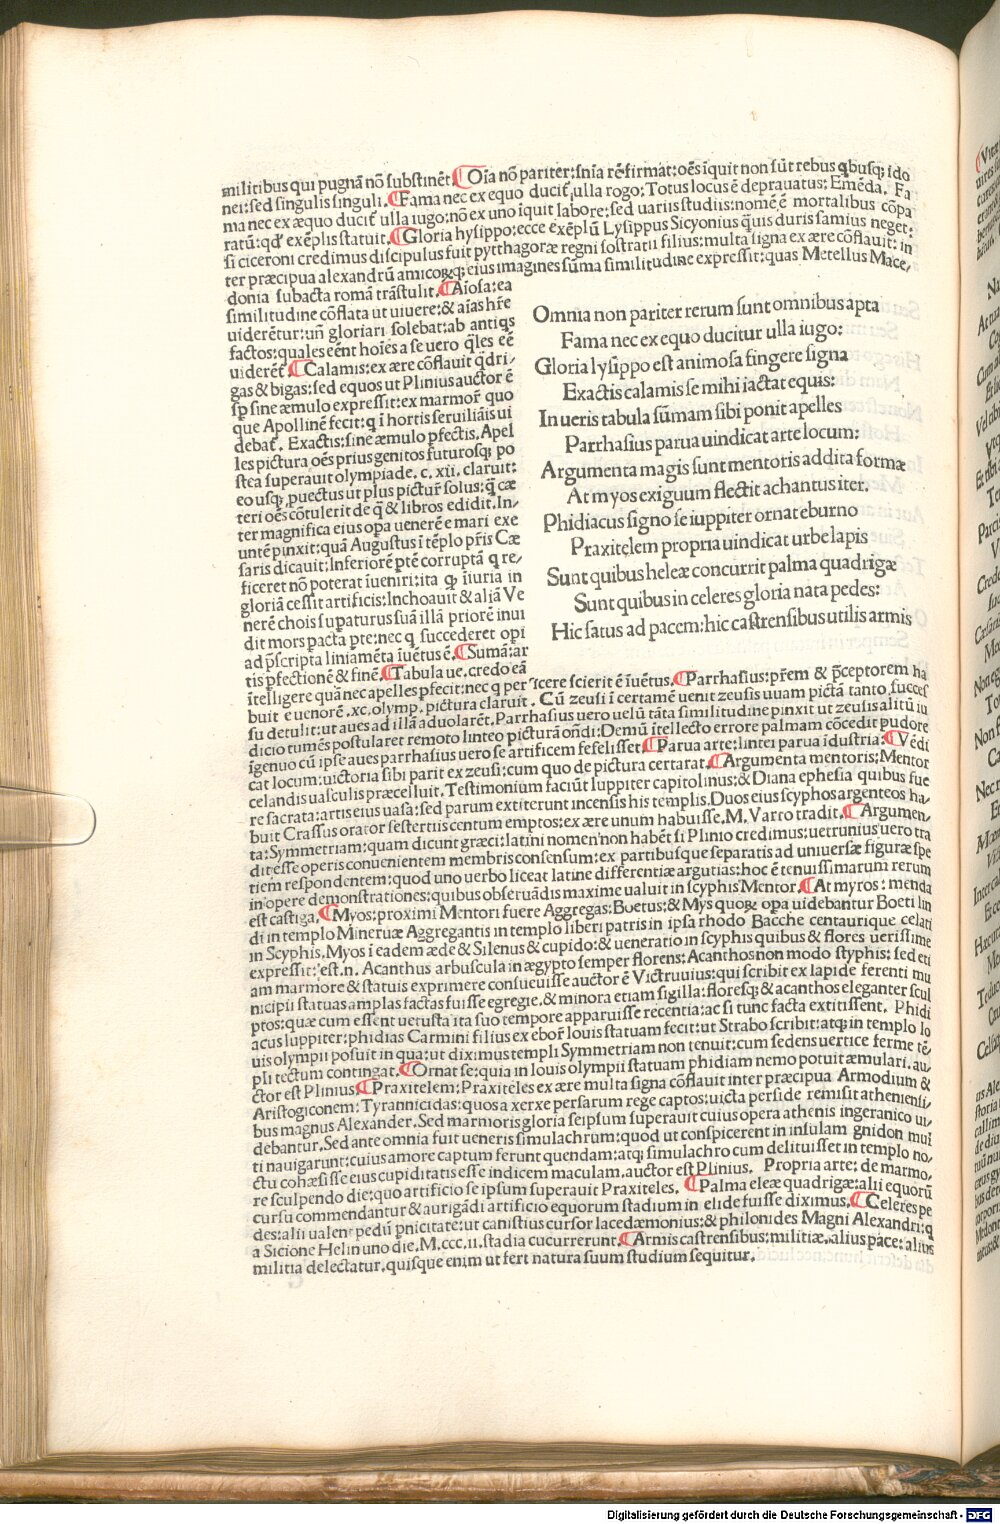 militibus qui pugnãt nõ substinẽt. Oĩa nõ pariter: snĩa rẽ firmat: oẽs ĩquit non sũt rebus qbusqꝫ ido
nei: sed singulis singuli. Fama nec ex equo ducit̃ ulla rogo: Totus locus ẽ deprauatus: Emẽda. Fa
ma nec ex æquo ducit̃ ulla iugo: nõ ex uno ĩquit labore: sed uariis studiis: nomẽ ẽ mortalibus cõpa
ratũ: qđ exẽplis statuit. Gloria hysippo: ecce exẽplũ Lysippus Sicyonius q̃uis duris samius neget:
si ciceroni credimus discipulus fuit pytthagoræ regni sostratii filius: multa signa ex ære cõflauit: in
ter præcipua alexandrũ amicorꝫqꝫ eius imagines sũma similitudine expressit: quas Metellus Mace,
donia subacta romã trãstulit. Aĩosa: ea
similitudine cõflata ut uiuere: & aĩas hr̃e
uiderẽtur: uñ gloriari solebat: ab antiqs
factos: quales eẽnt hoĩes a se uero q̃les eẽ
uiderẽt̃ Calamis: ex ære cõflauit q̃dri,
gas & bigas: sed equos ut Plinius auctor ẽ
sp̃ sine æmulo expressit: ex marmor̃ quo
que Apollinẽ fecit: q̃ ĩ hortis seruiliãis ui
debat̃. Exactis: sine æmulo p̃fectis. Apel
les pictura oẽs prius genitos futurosqꝫ po
stea superauit olympiade. c. xii. claruit:
eo usqꝫ puectus ut plus pictur̃ solus: q̃ cæ
teri oẽs cõtulerit de q̃ & libros edidit. In,
ter magnifica eius opa uenerẽ e mari exe
untẽ pinxit: quã Augustus ĩ tẽplo pr̃is Cæ
saris dicauit: Inferiorẽ p̃tẽ corruptã q re,
ficeret nõ poterat ĩueniri: ita qꝫ ĩiuria in
gloriã cessit artificis: Inchoauit & aliã Ve
nerẽ chois supaturus suã illã priorẽ inui
dit mors pacta p̃te: nec q succederet opi
ad p̃scripta liniamẽta ĩuẽtus ẽ. Sumã: ar
tis p̃fectionẽ & finẽ. Tabula ue. credo eã
Omnia non pariter rerum sunt omnibus apta
Fama nec ex equo ducitur ulla iugo:
Gloria lysippo est animosa fingere signa
Exactis calamis se mihi iactat equis:
In ueris tabula sũmam sibi ponit apelles
Parrhasius parua uindicat arte locum:
Argumenta magis sunt mentoris addita formæ
At myos exiguum flectit achantus iter.
Phidiacus signo se iuppiter ornat eburno
Praxitelem propria uindicat urbe lapis
Sunt quibus heleæ concurrit palma quadrigæ
Sunt quibus in celeres gloria nata pedes:
Hic satus ad pacem: hic castrensibus utilis armis
ĩtelligere quã nec apelles p̃fecit: nec q perficere scierit ẽ ĩuẽtus. Parrhasius: pr̃em & p̃ceptorem ha
buit euenorẽ. xc. olymp. pictura claruit. Cũ zeusi ĩ certamẽ uenit zeusis uuam pictã tanto succes
su detulit: ut aues ad illã aduolarẽt. Parrhasius uero uelũ tãta similitudine pinxit ut zeusis alitũ iu
dicio tumẽs postularet remoto linteo picturã oñdi: Demũ ĩtellecto errore palmam cõcedit pudore
ĩgenuo cũ ipse aues parrhasius uero se artificem fefelisset. Parua arte: lintei parua ĩdustria: Vẽdi
cat locum: uictoria sibi parit ex zeusi: cum quo de pictura certarat. Argumenta mentoris: Mentor
celandis uasculis præcelluit. Testimonium faciũt Iuppiter capitolinus: & Diana ephesia quibus fue
re sacrata: artis eius uasa: sed parum extiterunt incensis his templis. Duos eius scyphos argenteos ha,
buit Crassus orator sestertiis centum emptos: ex ære unum habuisse. M. Varro tradit. Argumen,
ta: Symmetriam: quam dicunt græci: latini nomen non habẽt si Plinio credimus: uetrunius uero tra
dit esse operis conuenientem membris consensum: ex partibusque separatis ad uniuersæ figuræ spe
tiem respondentem: quod uno uerbo liceat latine differentiæ argutias: hoc ẽ tenuissimarum rerum
in opere demonstrationes: quibus obseruãdis maxime ualuit in scyphis Mentor. At myros: menda
est castiga. Myos: proximi Mentori fuere Aggregas: Boetus: & Mys quorꝫ opa uidebantur Boeti lin
di in templo Mineruæ Aggregantis in templo liberi patris in ipsa rhodo Bacche centaurique celati
in Scyphis. Myos ĩ eadem æde & Silenus & cupido: & ueneratio in scyphis quibus & flores uerissime
expressit: est. n. Acanthus arbuscula in ægypto semper florens: Acanthos non modo styphis: sed eti
am marmore & statuis exprimere consueuisse auctor ẽ Victruuius: qui scribit ex lapide ferenti mu
nicipii statuas amplas factas fuisse egregie. & minora etiam sigilla: floresqꝫ & acanthos eleganter scul
ptos: quæ cum essent uetusta ita suo tempore apparuisse recentia: ac si tunc facta extitissent. Phidi
acus Iuppiter: phidias Carmini filius ex ebor̃ Iouis statuam fecit: ut Strabo scribit: atqꝫ in templo Io
uis olympii posuit in qua: ut diximus templi Symmetriam non tenuit: cum sedens uertice ferme tẽ,
pli tectum contingat. Ornat se: quia in Iouis olympii statuam phidiam nemo potuit æmulari. au,
ctor est Plinius. Praxitelem: Praxiteles ex ære multa signa cõflauit inter præcipua Armodium &
Aristogiconem: Tyrannicidas: quos a xerxe persarum rege captos: uicta perside remisit atheniensi,
bus magnus Alexander. Sed marmoris gloria seipsum superauit cuius opera athenis in geranico ui,
debantur. Sed ante omnia fuit ueneris simulachrum: quod ut conspicerent in insulam gnidon mul
ti nauigarunt: cuius amore captum ferunt quendam: atqꝫ simulachro cum delituisset in templo no,
ctu cohæsisse eius cupiditatis esse indicem maculam. auctor est Plinius. Propria arte: de marmo,
re sculpendo die: quo artificio se ipsum superauit Praxiteles. Palma eleæ quadrigæ: alii equorũ
cursu commendantur & aurigãdi artificio equorum stadium in elide fuisse diximus. Celeres pe
des: alii ualent pedũ pnicitate: ut canistius cursor lacedæmonius: & philonides Magni Alexandri: q
a Sicione Helin uno die. M. ccc. ii. stadia cucurrerunt. Armis castrensibus: militiæ. alius pace: alius
militia delectatur. quisque enim ut fert natura suum studium sequitur.
Digitalisierung gefördert durch die Deutsche Forschungsgemeinschaft - DFG